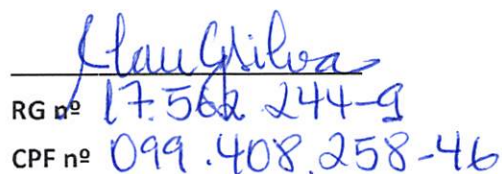 RG nº 17.562 244-9
CPF nº 099.408.258-46